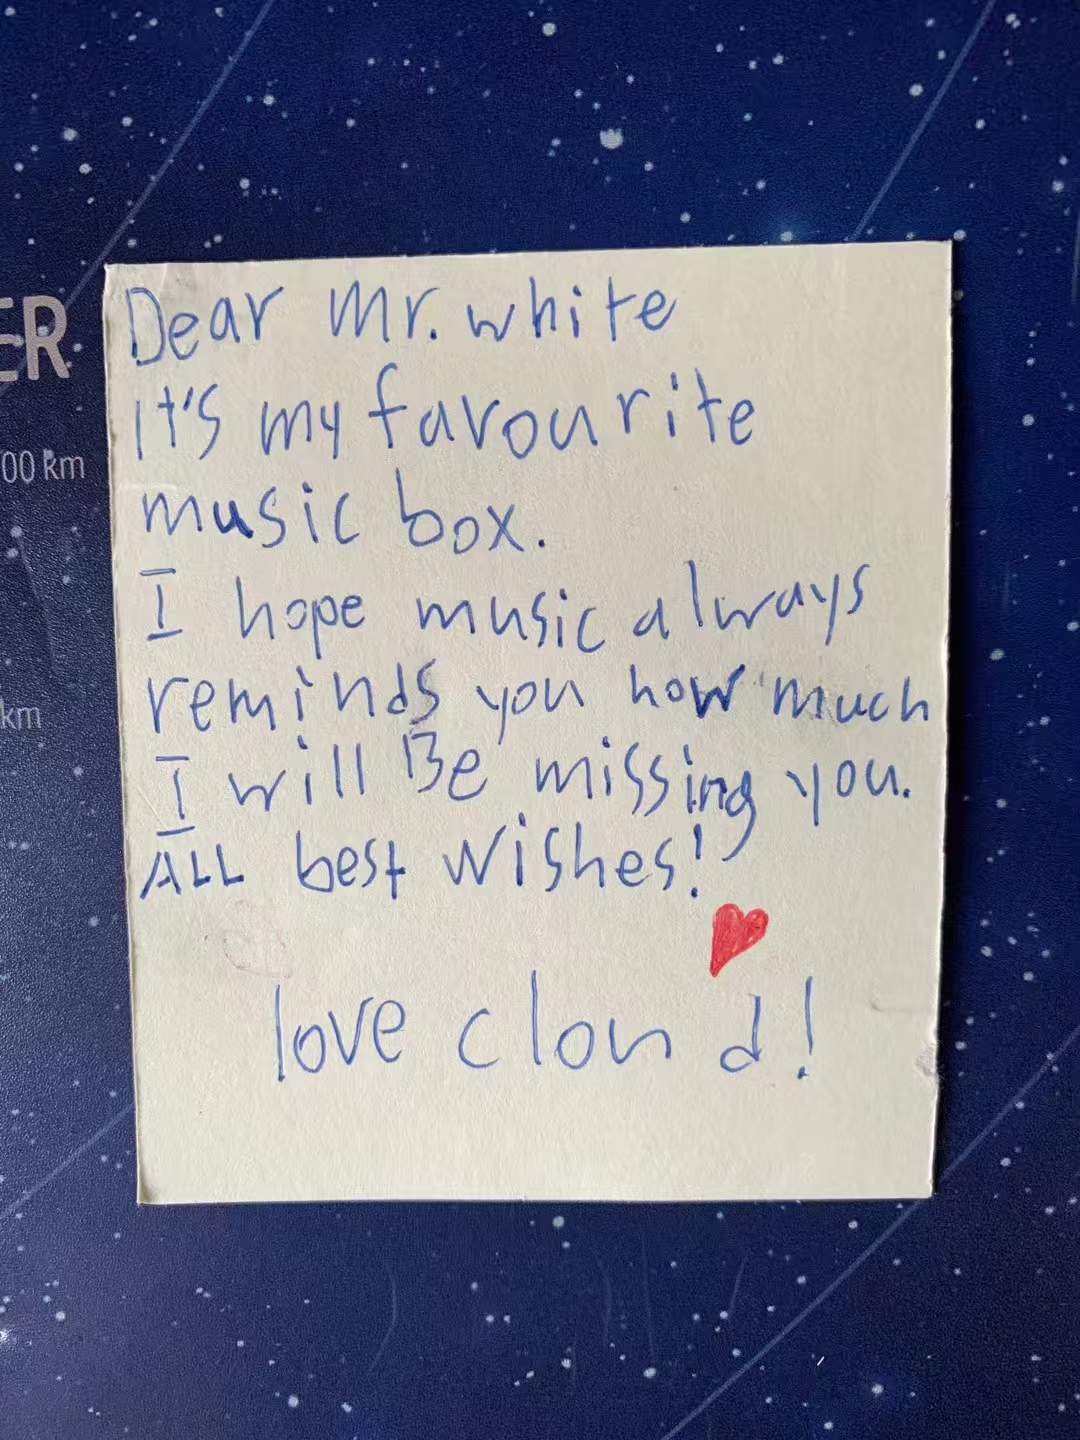 Dear Mr. white
It's my favourite
music box.
I hope music always
reminds you how much
I will Be missing you.
ALL best wishes!
love cloud!
ER
00 km
km